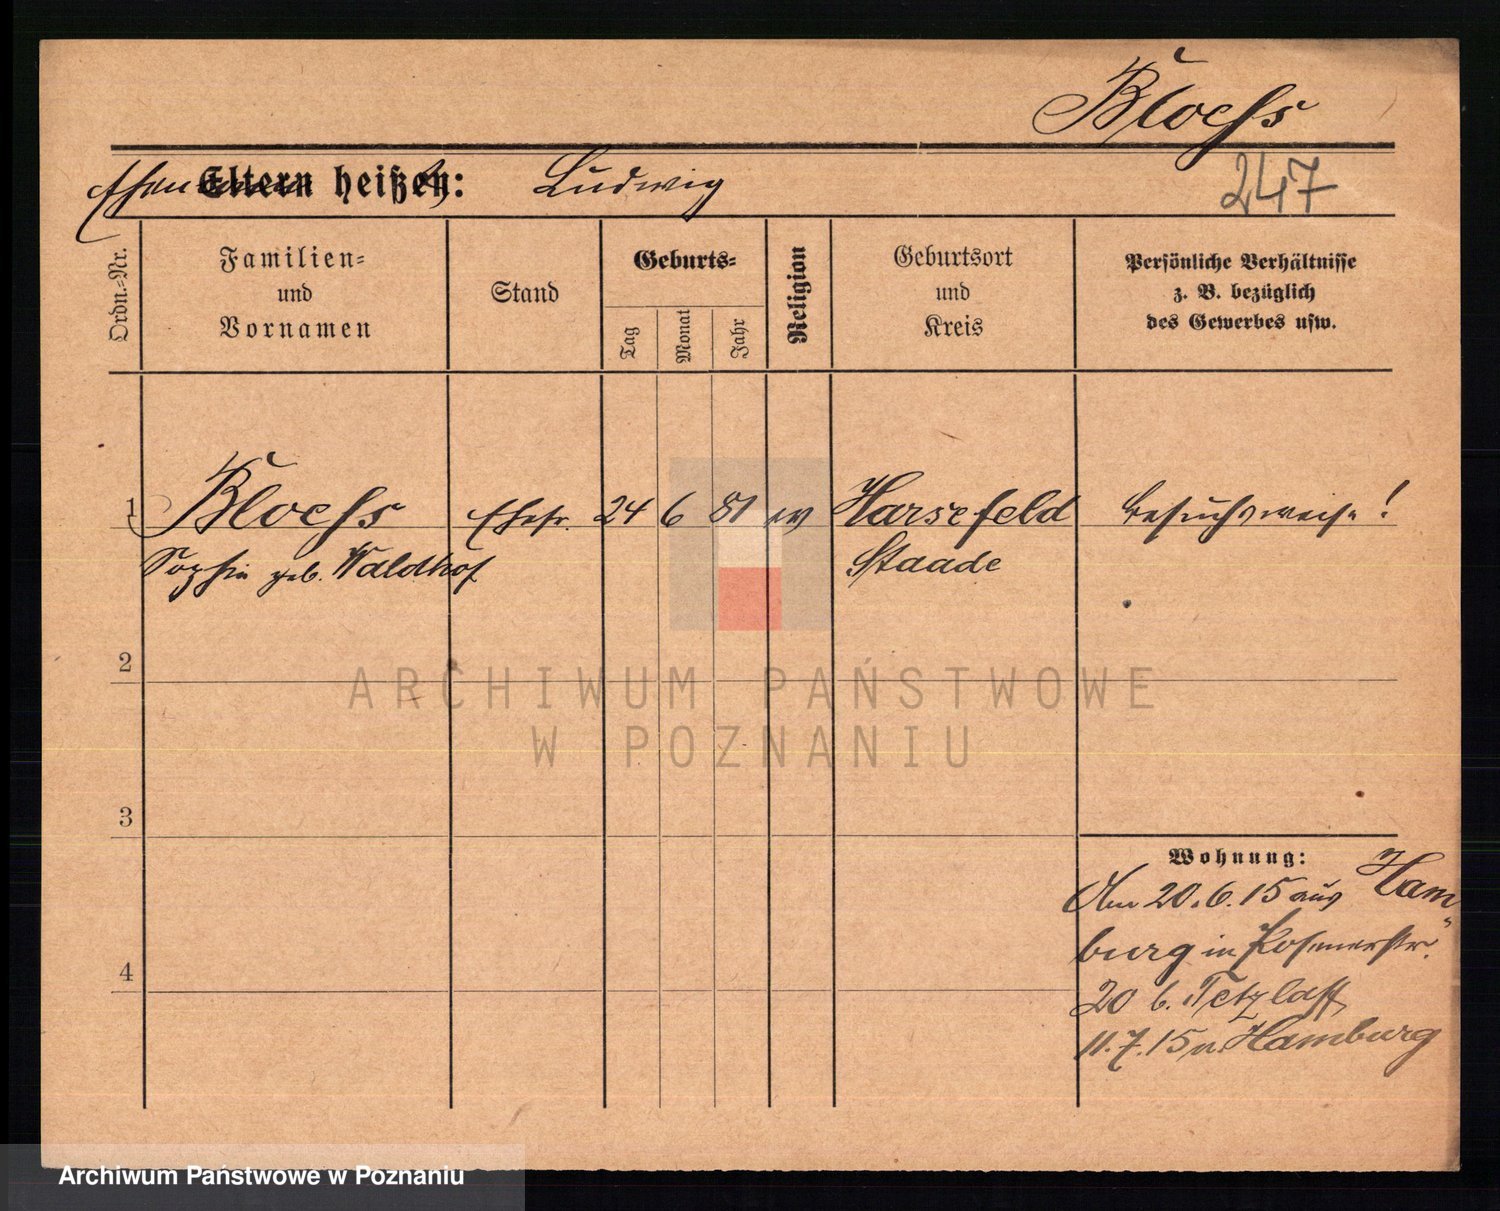 Bloehs
247
Ehemann Eltern heißen: Ludwig
Ordn.-Nr.
Familien- und Vornamen
Stand
Geburts-
Tag
Monat
Jahr
Religion
Geburtsort und Kreis
Persönliche Verhältnisse
z. B. bezüglich
des Gewerbes usw.
1 Bloehs Ehefr. 24 6 81 ev Harsefeld besuchsweise!
Sophie geb. Waldhof Staade
2
3
4
Wohnung:
Am 20.6.15 aus Ham-
burg in Posenerstr.
20 b. Tetzlaff
11.7.15 n. Hamburg
ARCHIWUM PAŃSTWOWE
W POZNANIU
Archiwum Państwowe w Poznaniu